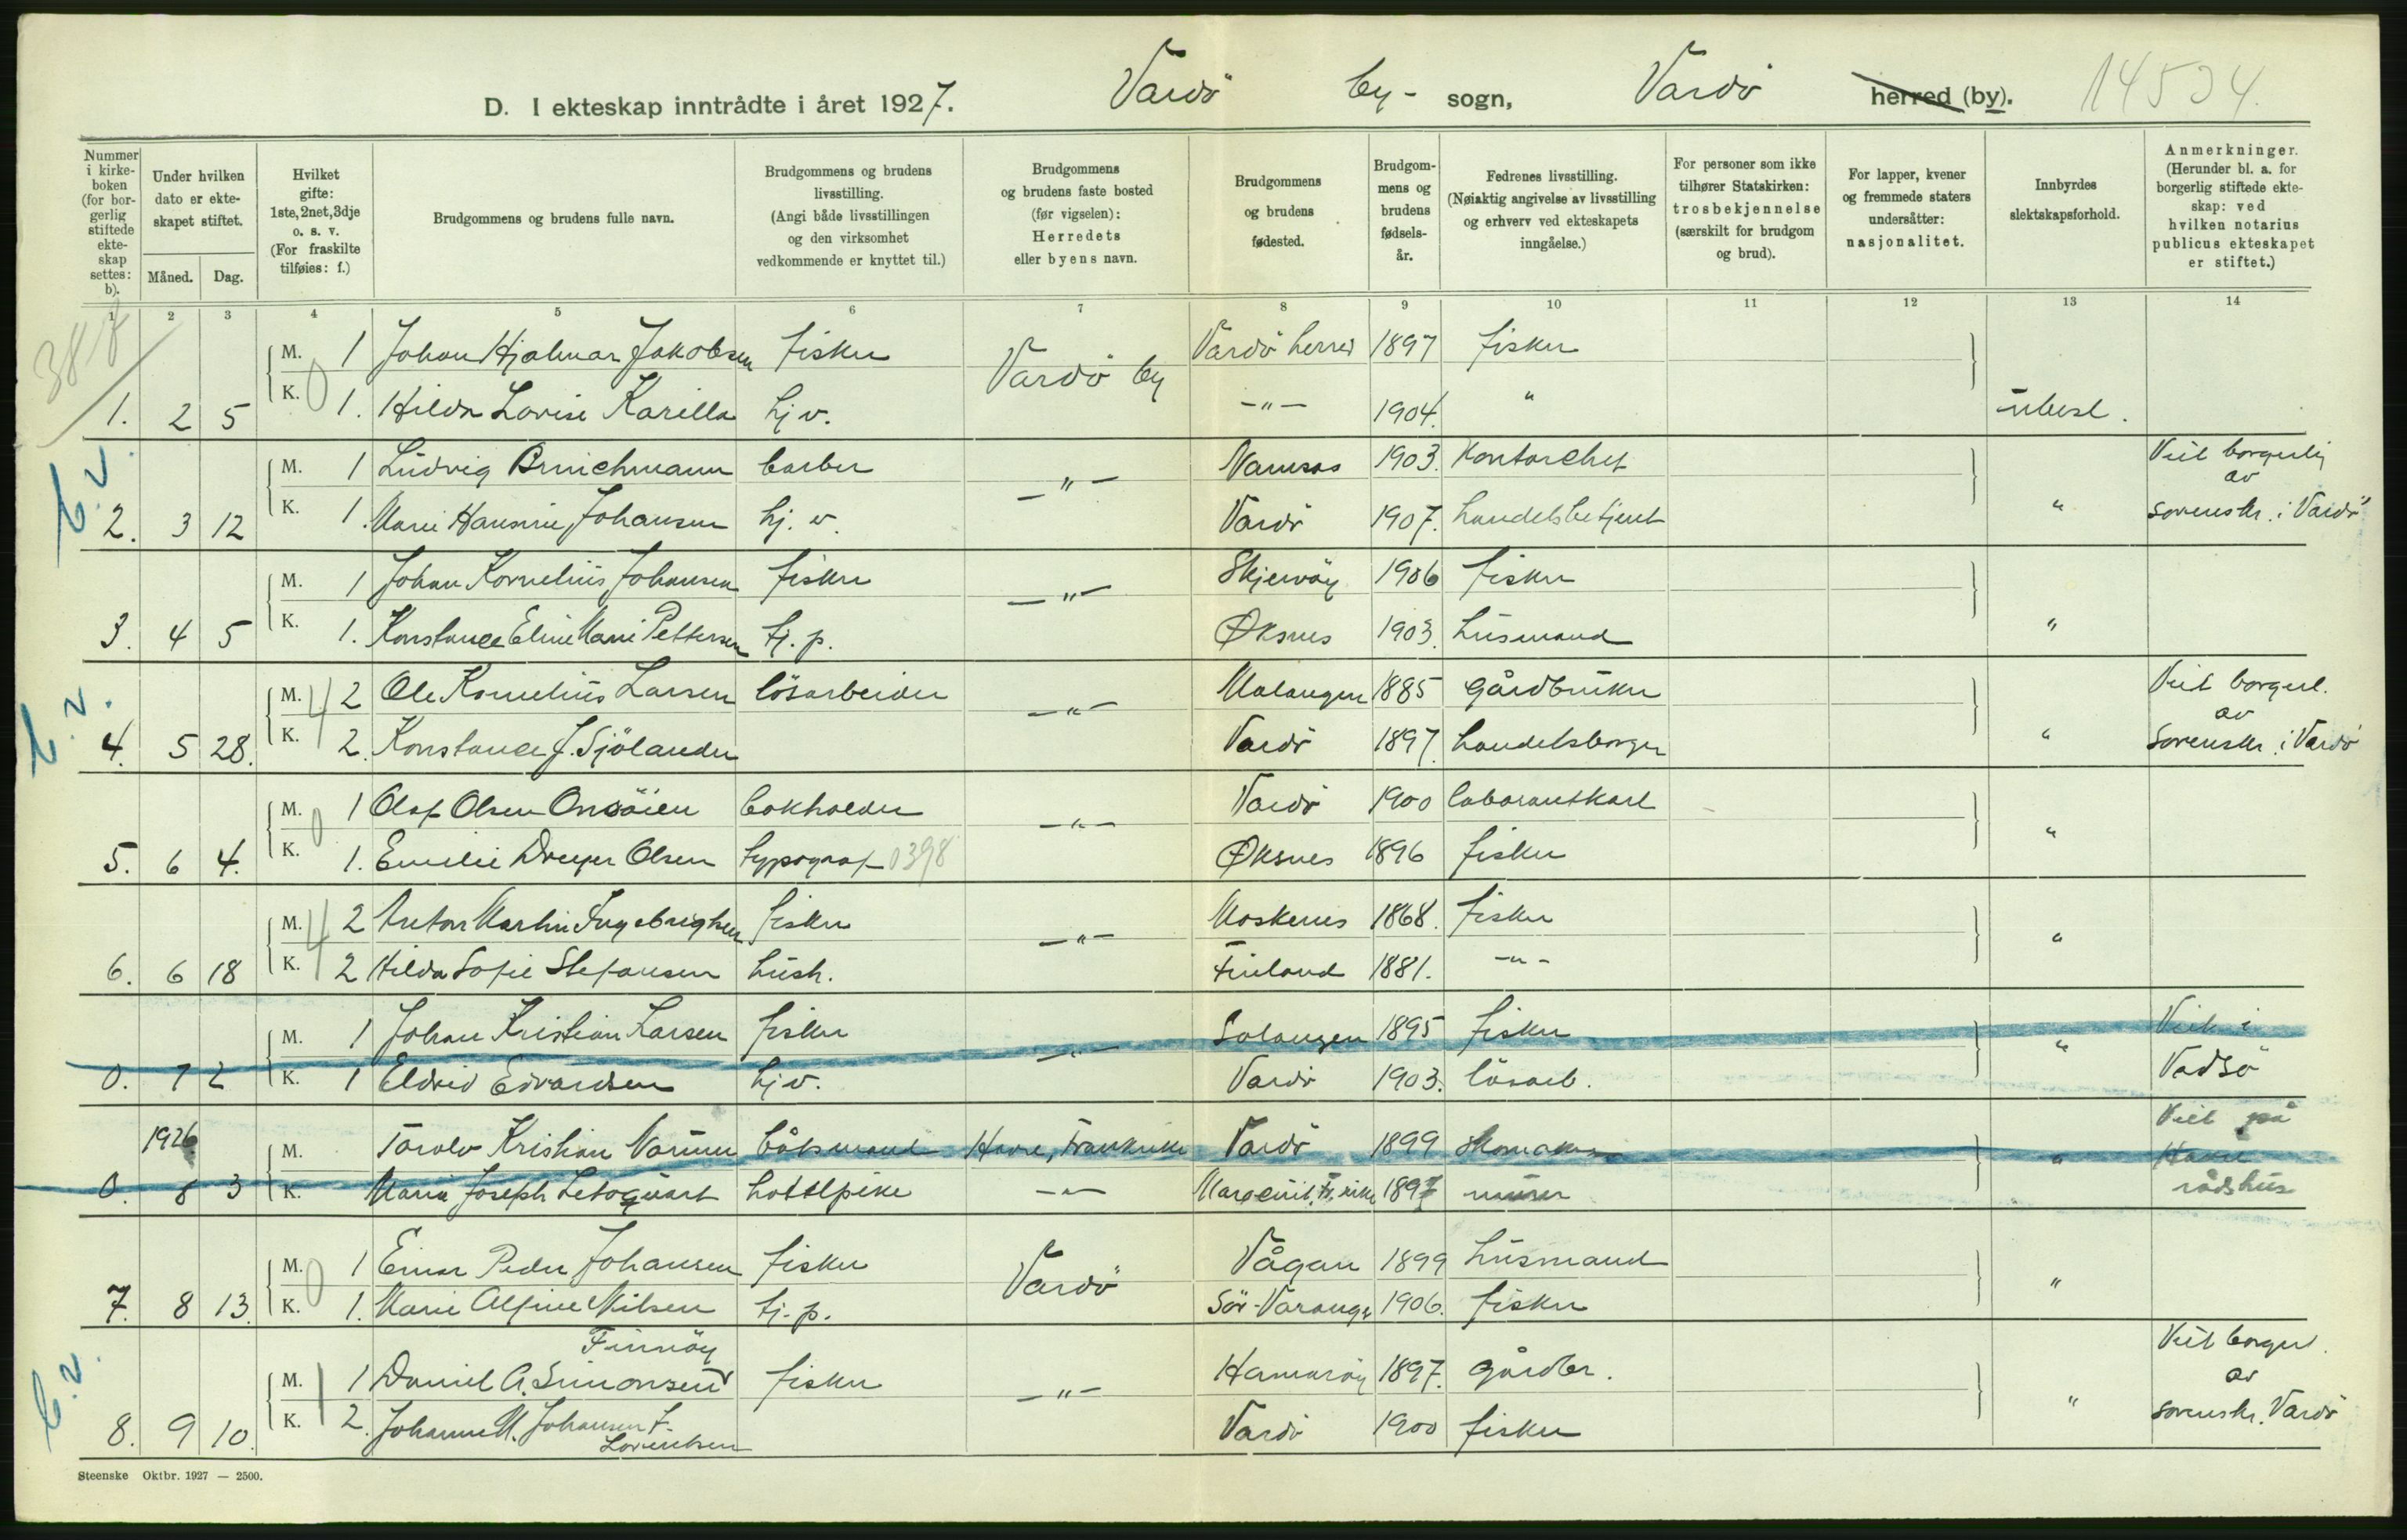 D. I ekteskap inntrådte i året 1927. Vardö by- sogn, Vardö herred (by). 14534.
Nummer i kirkeboken (for borgerlig stiftede ekteskap settes: b).
Under hvilken dato er ekteskapet stiftet.
Måned. Dag.
Hvilket gifte: 1ste, 2net, 3dje o. s. v. (For fraskilte tilføies: f.)
Brudgommens og brudens fulle navn.
Brudgommens og brudens livsstilling. (Angi både livsstillingen og den virksomhet vedkommende er knyttet til.)
Brudgommens og brudens faste bosted (før vigselen): Herredets eller byens navn.
Brudgommens og brudens fødested.
Brudgommens og brudens fødselsår.
Fedrenes livsstilling. (Nøiaktig angivelse av livsstilling og erhverv ved ekteskapets inngåelse.)
For personer som ikke tilhører Statskirken: trosbekjennelse (særskilt for brudgom og brud).
For lapper, kvener og fremmede staters undersåtter: nasjonalitet.
Innbyrdes slektskapsforhold.
Anmerkninger. (Herunder bl. a. for borgerlig stiftede ekteskap: ved hvilken notarius publicus ekteskapet er stiftet.)
1 2 3 4 5 6 7 8 9 10 11 12 13 14
M. 1 Johan Hjalmar Jakobsen fisker Vardö by Vardö herred 1897 fisker
1. 2 5 K. 1. Hilda Lovise Karilla hj v. -"- 1904. " ubesl.
M. 1 Ludvig Brüchmann barber -"- Namsos 1903. Kontorchef Viet borgerlig av
2. 3 12 K. 1. Marie Hansine Johansen hj. v. Vardö 1907. handelsbetjent " sorenskr. i Vardö
M. 1 Johan Kornelius Johansen fisker -"- Skjervöy 1906 fisker
3. 4 5 K. 1. Konstance Eline Marie Pettersen tj. p. Øksnes 1903. husmand "
M. 2 Ole Kornelius Larsen lösarbeider -"- Malangen 1885 gårdbruker Viet borgerl. av
4. 5 28. K. 2. Konstance J. Sjölander Vardö 1897. handelsborger " Sorenskr. i Vardö
M. 1 Olaf Olsen Onsöien bokholder -"- Vardö 1900
5. 6 4. K. 1. Emilie Dreyer Olsen typograf 0398 Øksnes 1896 fisker "
M. 2 Anton Martin Ingebrigtsen fisker -"- Moskenes 1868. fisker
6. 6 18 K. 2 Hilda Sofie Stefansen hush. Finland 1881. -"- "
M. 1 Johan Kristian Larsen fisker -"- Salangen 1895 fisker Viet i
0. 7 2 K. 1 Eldrid Edvardsen hj v. Vardö 1903. lösarb. " Vadsö
1926 M. Torolv Kristian båtsmand Havre, Frankrike Vardö 1899 skomaker Viet på Havre
0. 8 3 K. Maria Joseph hotelpike -"- 1897 murer " rådshus
M. 1 Einar Peder Johansen fisker Vardö Vågan 1899 husmand
7. 8 13. K. 1. Marie Alfine Nilsen tj. p. Sör-Varanger 1906. fisker "
Finnöy
M. 1 Daniel A. Simonsen fisker -"- Hamaröy 1897. gårdbr. Viet borgerl. av
8. 9 10. K. 2. Johanne M. Johansen f. Lorentsen Vardö 1900 fisker " sorenskr. Vardö
Steenske Oktbr. 1927 — 2500.